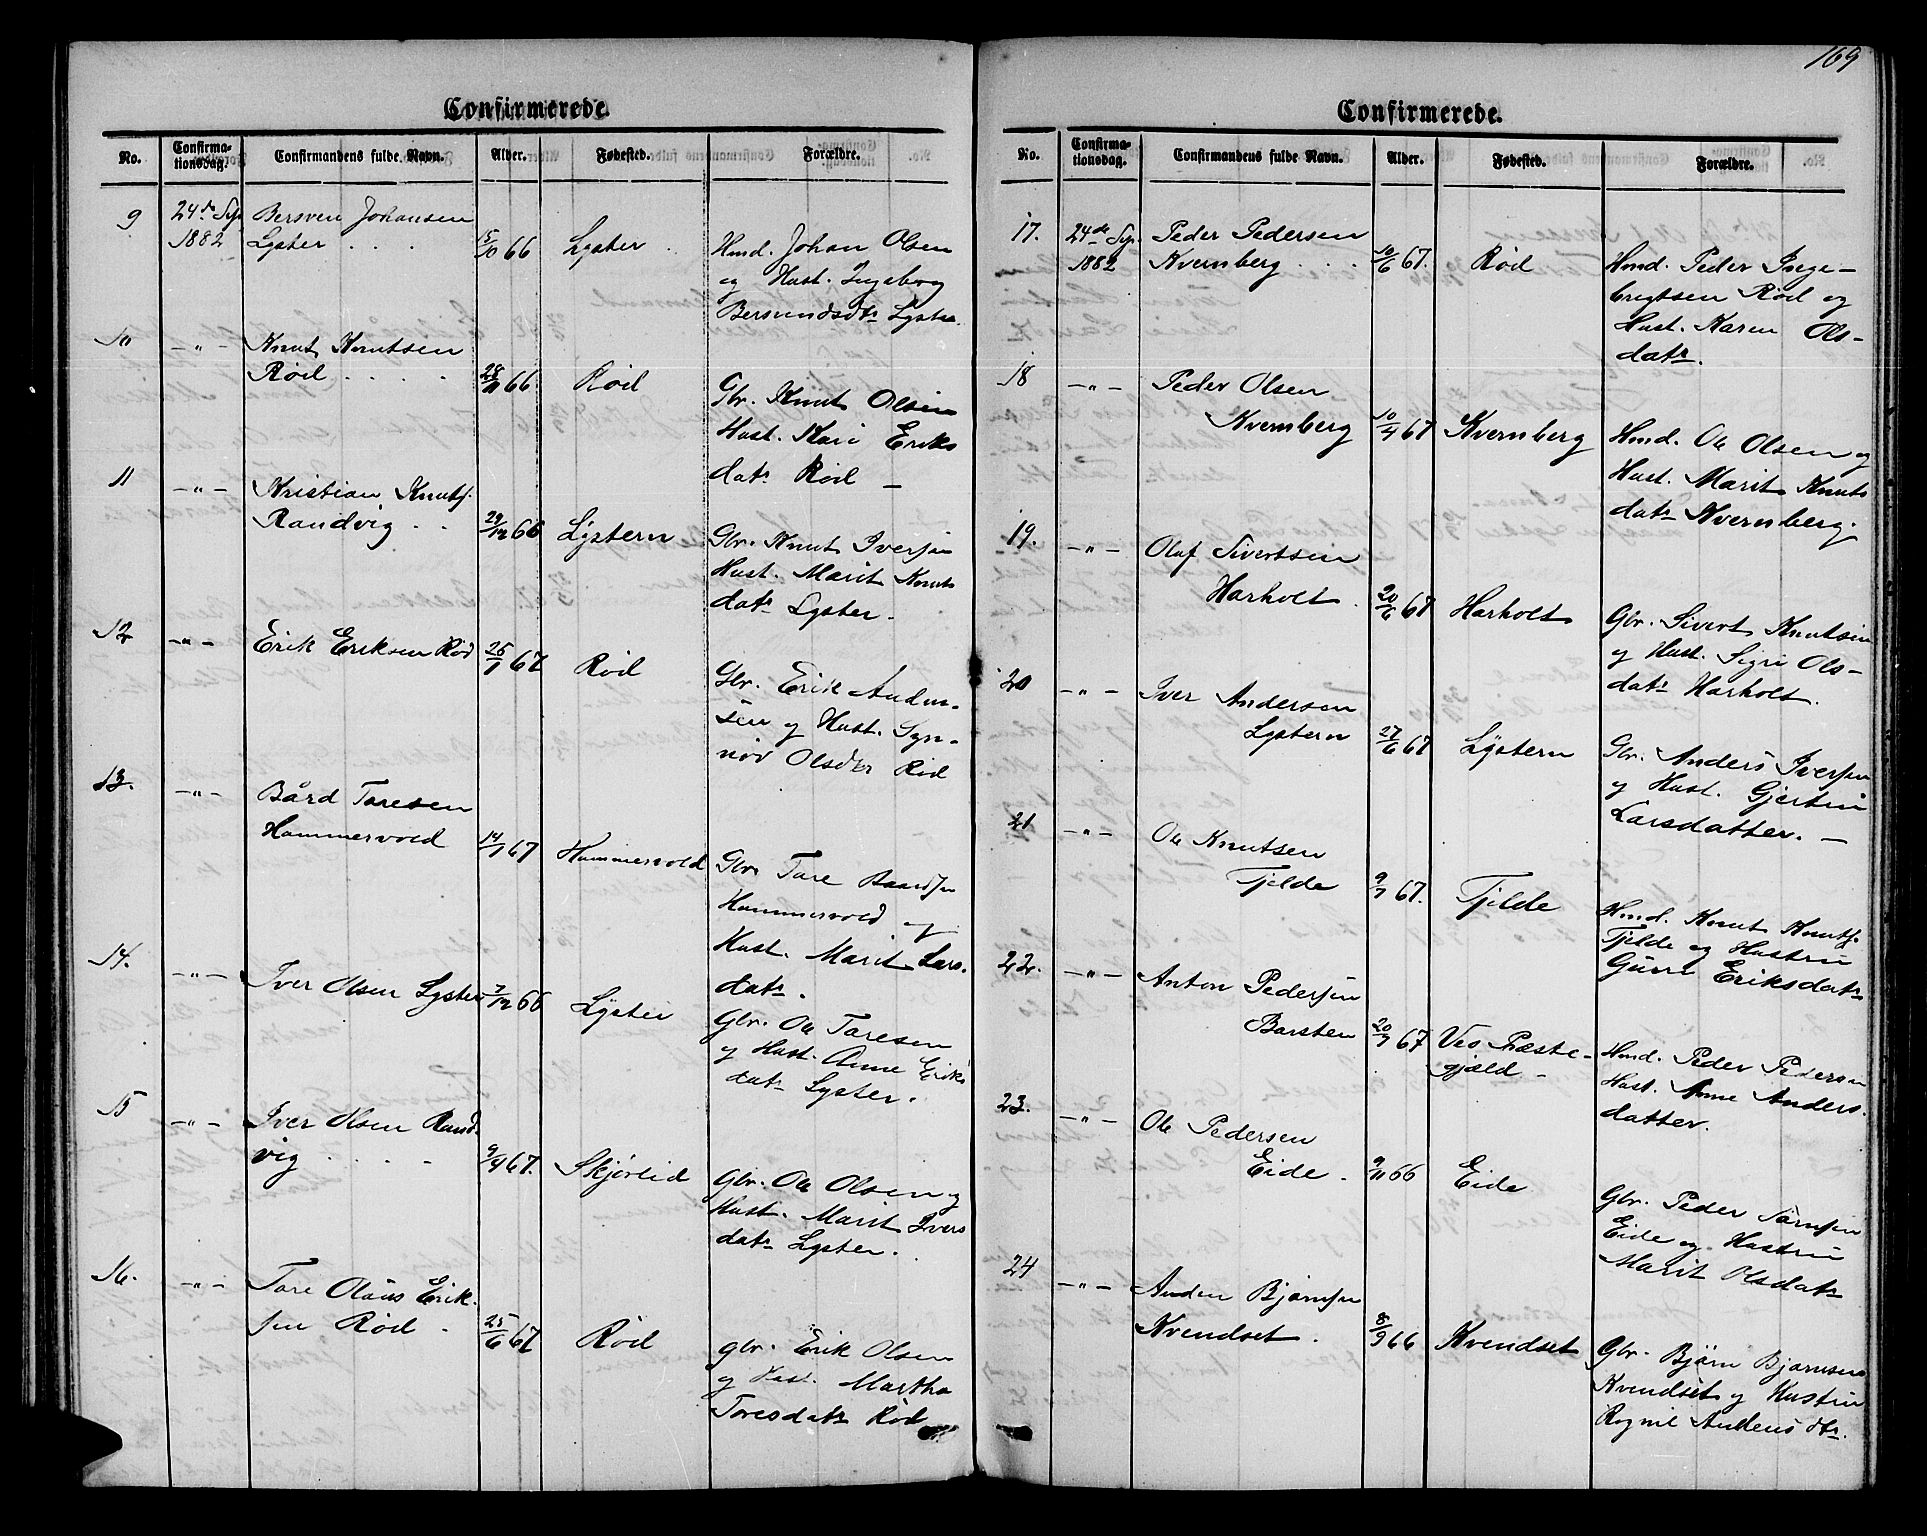 169
Confirmerede.
No. Confirma-tionsdag. Confirmandens fulde Navn. Alder. Fødested. Forældre.
9 24de Sep. Bersven Johansen
1882 Lyster . . . 15/10 66 Lyster . Hmd. Johan Olsen
og Hust. Ingeborg
Bersvendsdtr Lyster.
10 -"- Knut Knutsen
Rød . . . . 28/11 66 Rød Gbr. Knut Olsen
Hust. Kari Eriks
datr Rød -
11 -"- Kristian Knuts.
Randvig . . 29/12 66 Lystern Gbr. Knut Iversen
Hust. Marit Knuts
datr Lyster.
12 -"- Erik Eriksen Rød 26/1 67 Rød Gbr. Erik Ander-
sen og Hust. Syn-
nøv Olsdtr Rød
13. -"- Bård Toresen
Hammervold 14/1 67 Hammervold Gbr. Tore Baardsen
Hammervold og
Hust. Marit Lars.
datr.
14. -"- Iver Olsen Lyster 7/12 66 Lyster
Gbr. Ole Toresen
og Hust. Anne Eriks
datr Lyster.
15 -"- Iver Olsen Rand-
vig . . . . 9/4 67. Skjøreid Gbr. Ole Olsen og
Hust. Marit Ivers
datr Lyster.
16. -"- Tore Olaus Erik-
sen Rød . 25/6 67 Rød gbr. Erik Olsen
og Hust. Martha
Toresdatr Rød
Confirmerede.
No. Confirma-tionsdag. Confirmandens fulde Navn. Alder. Fødested. Forældre.
17. 24de Sep. Peder Pedersen
1882 Kvernberg . . . 10/6 67. Rød Hmd. Peder Inge-
brigtsen Rød og
Hust. Karen Ols-
datr.
18 -"- Peder Olsen
Kvernberg 10/4 67 Kvernberg Hmd. Ole Olsen og
Hust. Marit Knuts
datr Kvernberg.
19. -"- Oluf Sivertsen
Harholt . 20/6 67 Harholt Gbr. Sivert Knutsen
og Hust. Sigri Ols-
datr Harholt.
20 -"- Iver Andersen
Lystern 27/6 67 Lystern Gbr. Anders Iversen
og Hust. Gjertru
Larsdatter. -
21 -"- Ole Knutsen
Tjelde 9/7 67. Tjelde
Hmd. Knut Knuts.
Tjelde og Hustru
Guru Eriksdatr
22. -"- Anton Pedersen
Barsten 20/7 67 Ves Præste-
gjæld - Hmd. Peder Pedersen
Hust. Anne Anders.
datter.
23. -"- Ole Pedersen
Eide . 9/11 66 Eide
Gbr. Peder
Eide og Hustru
Marit Olsdatr
24 -"- Anden Bjørnsen
Kvendset . 8/9 66 Kvendset Gbr. Bjørn Bjørnsen
Kvendset og Hustru
Ragnil dtr.